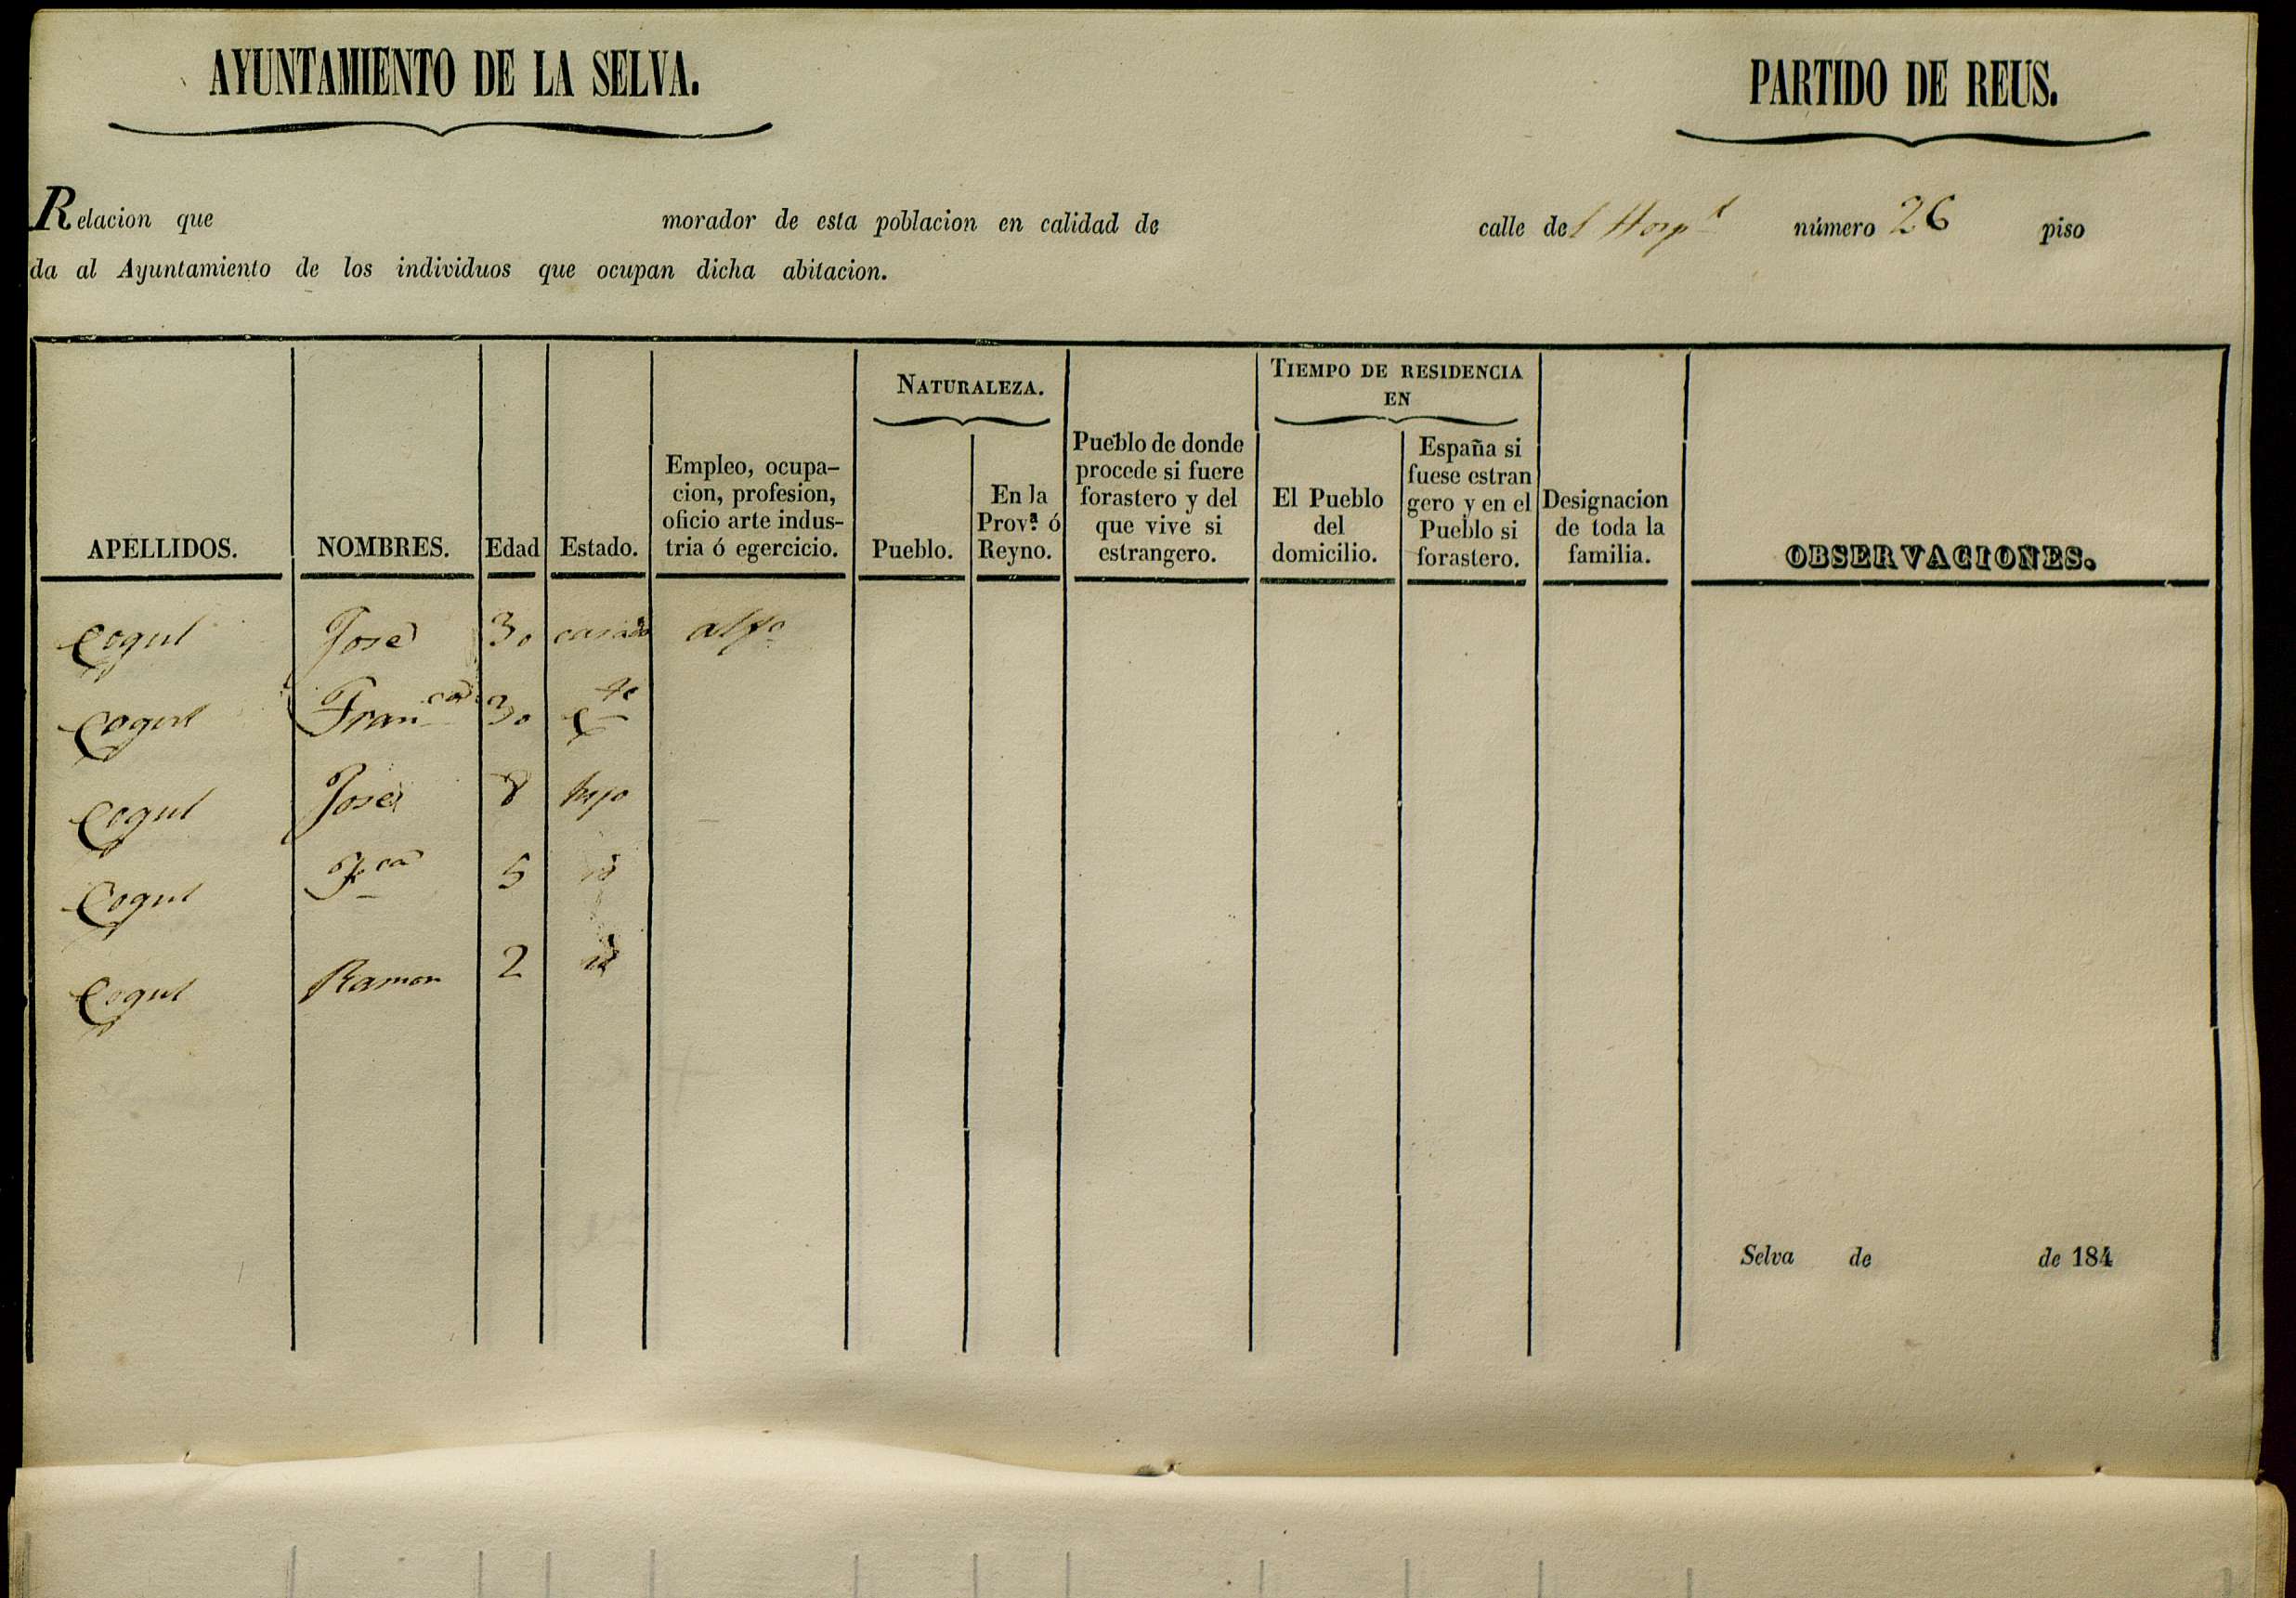 AYUNTAMIENTO DE LA SELVA.
PARTIDO DE REUS.
Relacion que morador de esta poblacion en calidad de calle del Hospl número 26 piso
da al Ayuntamiento de los individuos que ocupan dicha abitacion.
APELLIDOS.
NOMBRES.
Edad
Estado.
Empleo, ocupa-
cion, profesion,
oficio arte indus-
tria ó egercicio.
NATURALEZA.
Pueblo.
En la
Prov.ª ó
Reyno.
Pueblo de donde
procede si fuere
forastero y del
que vive si
estrangero.
TIEMPO DE RESIDENCIA
EN
El Pueblo
del
domicilio.
España si
fuese estran
gero y en el
Pueblo si
forastero.
Designacion
de toda la
familia.
OBSERVACIONES.
Cogul José 30 casado alfo
Cogul Franca 30 Cte
Cogul José 8 hijo
Cogul Fca 5 id
Cogul Ramon 2 id
Selva de de 184